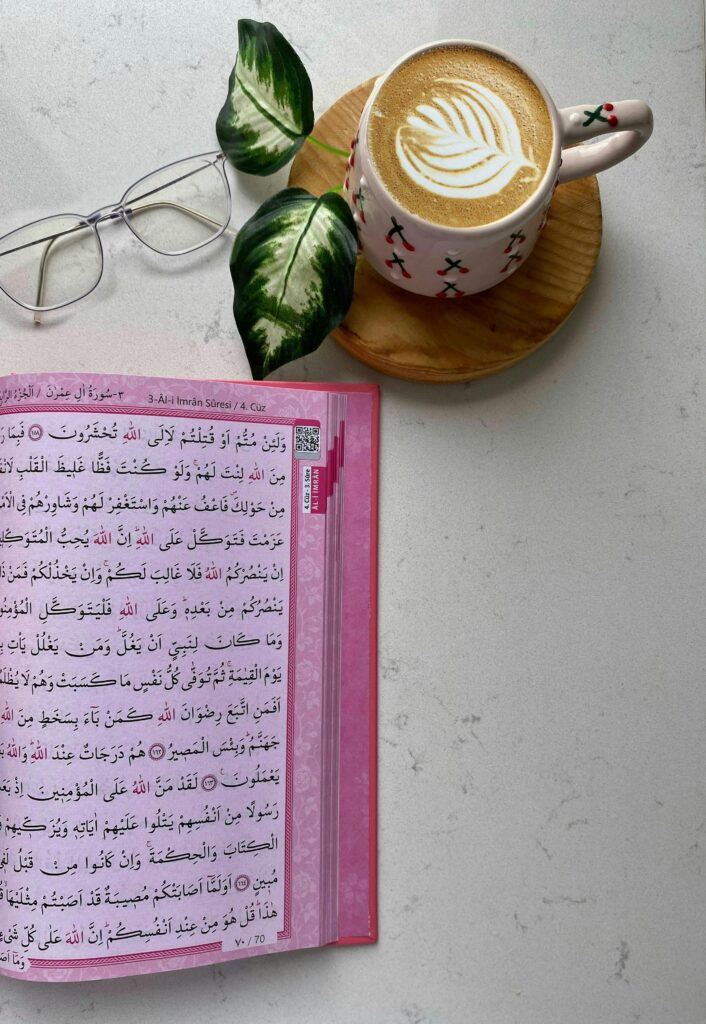 ٣-سُورَةُ اٰلِ عِمْرٰنَ / اَلْجُزْءُ
3-Âl-i İmrân Sûresi / 4. Cüz
وَلَئِنْ مُتُّمْ اَوْ قُتِلْتُمْ لَاِلَى اللّٰهِ تُحْشَرُونَ ﴿١٥٨﴾ فَبِمَا
مِنَ اللّٰهِ لِنْتَ لَهُمْۚ وَلَوْ كُنْتَ فَظًّا غَلٖيظَ الْقَلْبِ
مِنْ حَوْلِكَۖ فَاعْفُ عَنْهُمْ وَاسْتَغْفِرْ لَهُمْ وَشَاوِرْهُمْ فِي
عَزَمْتَ فَتَوَكَّلْ عَلَى اللّٰهِۜ اِنَّ اللّٰهَ يُحِبُّ
اِنْ يَنْصُرْكُمُ اللّٰهُ فَلَا غَالِبَ لَكُمْۚ وَاِنْ يَخْذُلْكُمْ فَمَنْ
يَنْصُرُكُمْ مِنْ بَعْدِهٖۜ وَعَلَى اللّٰهِ فَلْيَتَوَكَّلِ
وَمَا كَانَ لِنَبِيٍّ اَنْ يَغُلَّۜ وَمَنْ يَغْلُلْ يَأْتِ
يَوْمَ الْقِيٰمَةِۚ ثُمَّ تُوَفّٰى كُلُّ نَفْسٍ مَا كَسَبَتْ وَهُمْ لَا
اَفَمَنِ اتَّبَعَ رِضْوَانَ اللّٰهِ كَمَنْ بَٓاءَ بِسَخَطٍ مِنَ اللّٰهِ
جَهَنَّمُۜ وَبِئْسَ الْمَصٖيرُ ﴿١٦٢﴾ هُمْ دَرَجَاتٌ عِنْدَ اللّٰهِۜ وَاللّٰهُ
يَعْمَلُونَ ﴿١٦٣﴾ لَقَدْ مَنَّ اللّٰهُ عَلَى الْمُؤْمِنٖينَ اِذْ
رَسُولًا مِنْ اَنْفُسِهِمْ يَتْلُوا عَلَيْهِمْ اٰيَاتِهٖ وَيُزَكّٖيهِمْ
الْكِتَابَ وَالْحِكْمَةَۚ وَاِنْ كَانُوا مِنْ قَبْلُ
مُبٖينٍ ﴿١٦٤﴾ اَوَلَمَّٓا اَصَابَتْكُمْ مُصٖيبَةٌ قَدْ اَصَبْتُمْ مِثْلَيْهَاۙ
هٰذَاۜ قُلْ هُوَ مِنْ عِنْدِ اَنْفُسِكُمْۜ اِنَّ اللّٰهَ عَلٰى كُلِّ
٧٠ / 70
وَمَٓا
4.Cüz-3.Sûre
ÂL-İ İMRÂN